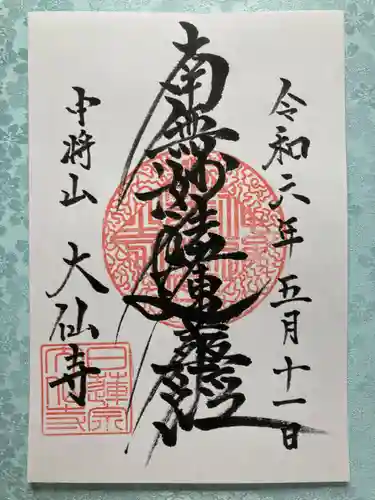 令和六年五月十一日
南無妙法蓮華経
中将山
大仙寺
日蓮宗
大仙寺